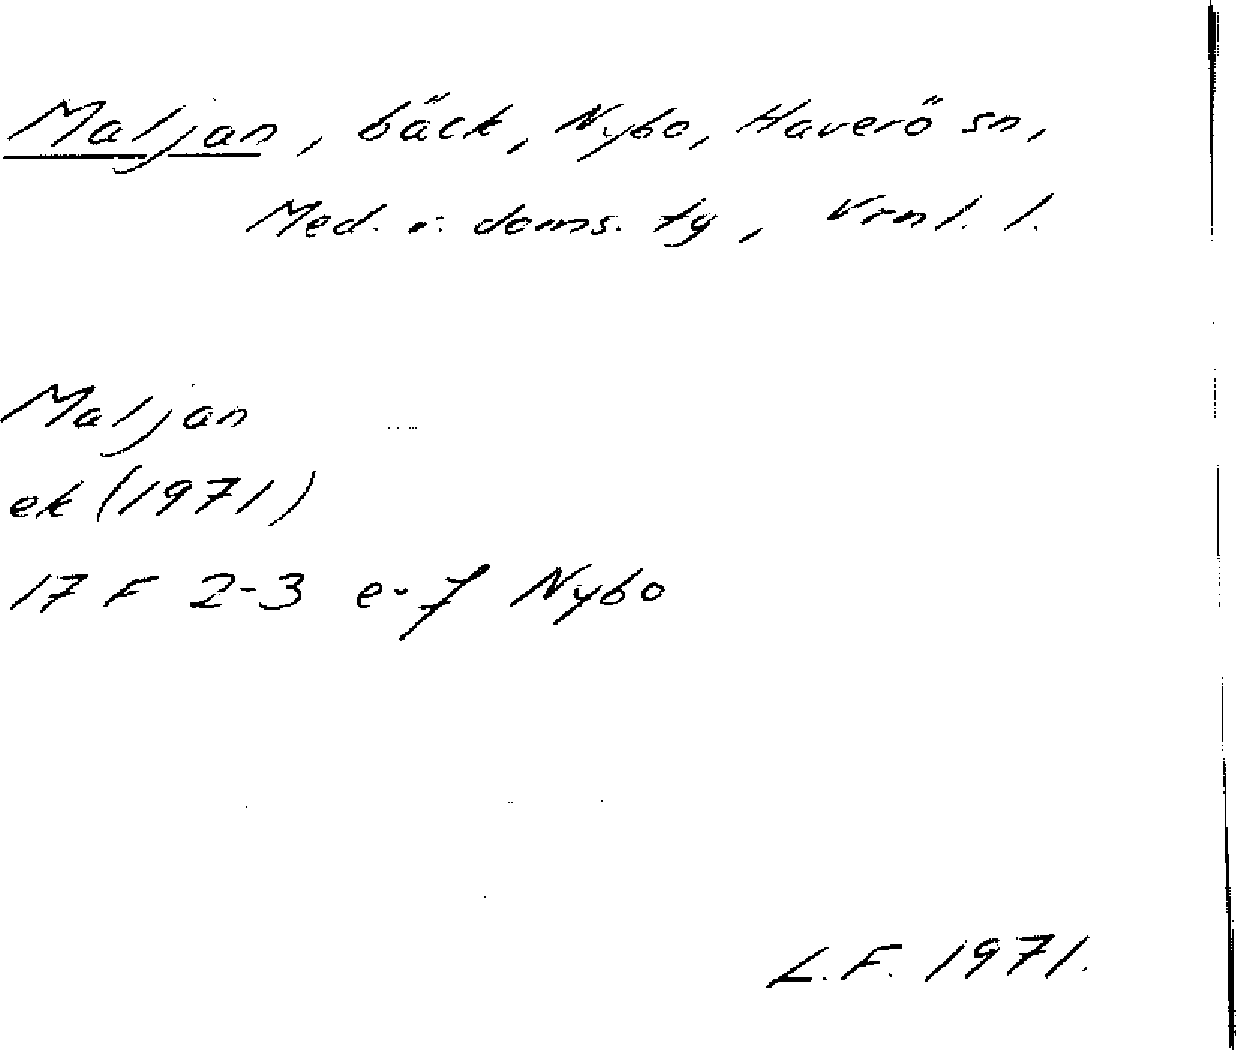 Maljan, bäck, Nybo, Haverö sn,
Med. v. doms. tg, Vrnl. l.
Maljan
ek (1971)
17 F 2-3 e-f Nybo
L.F. 1971.